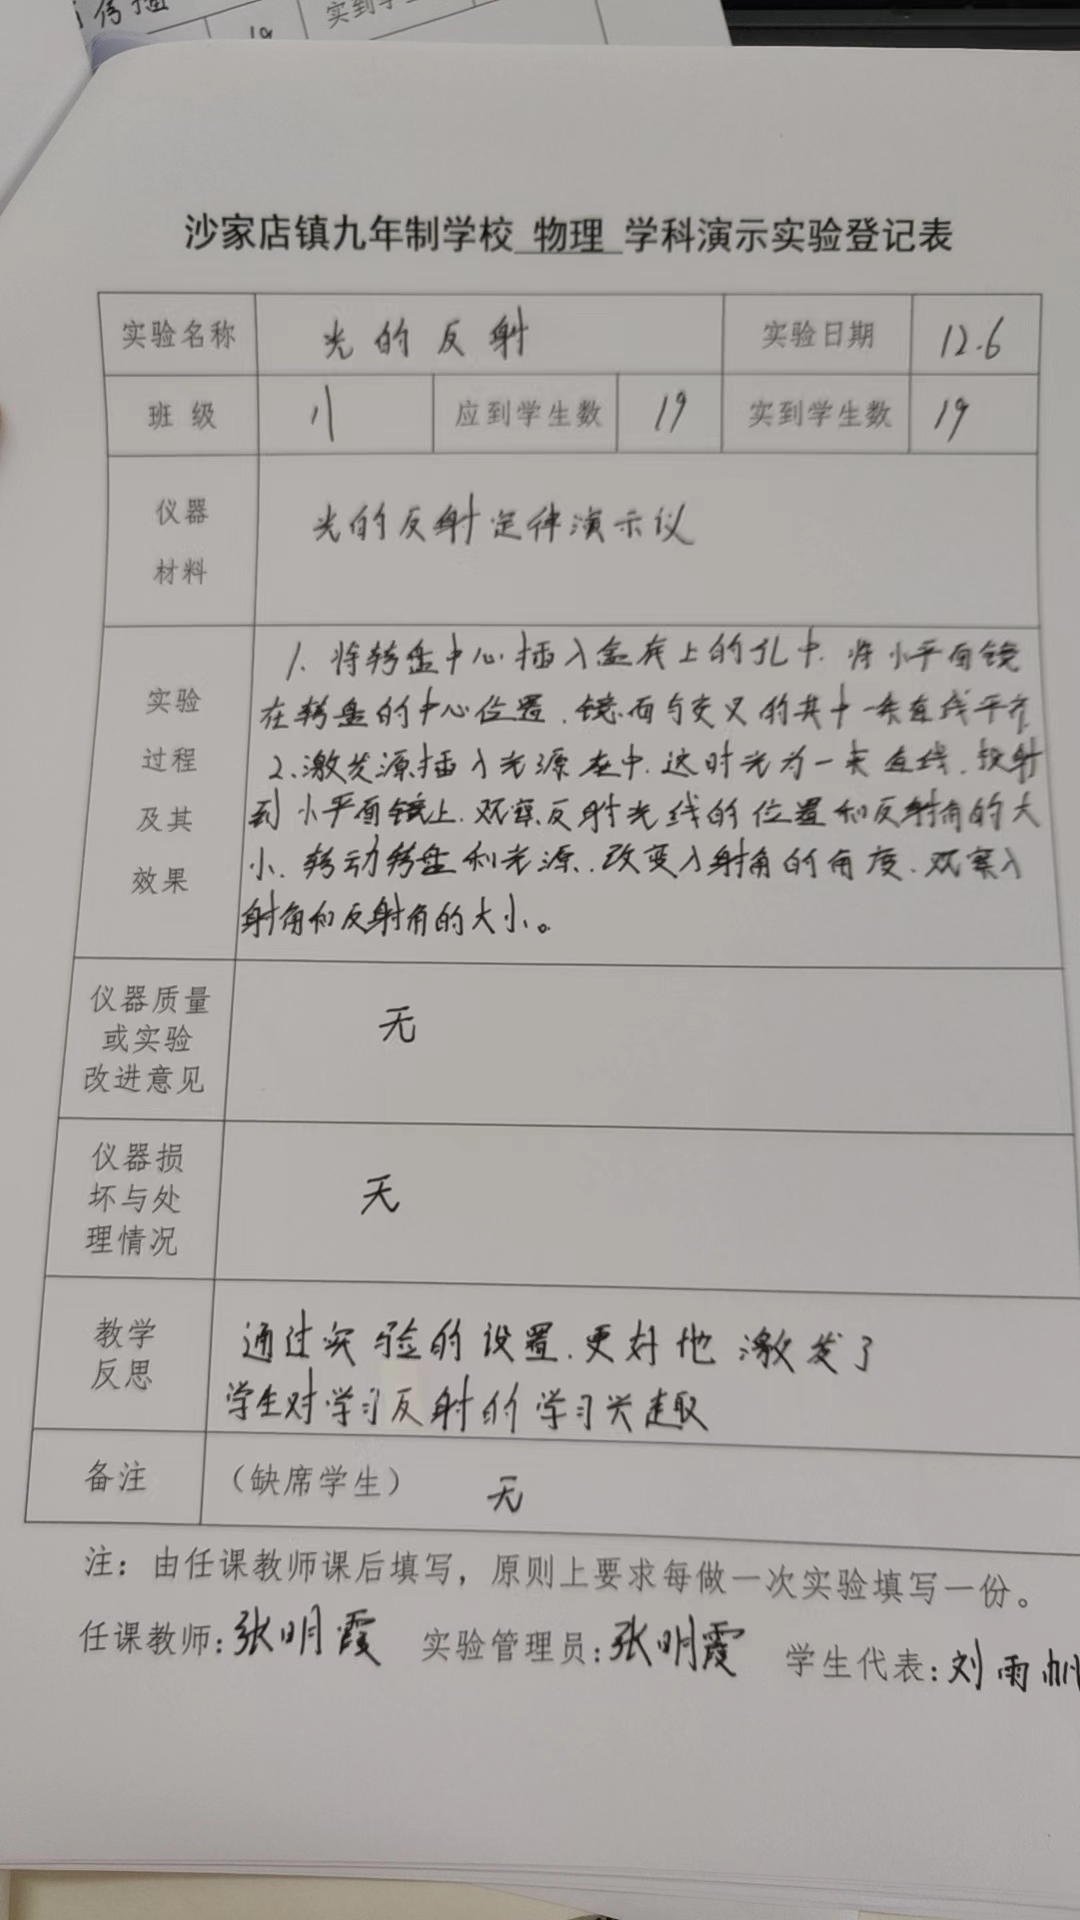 实到学生
19
沙家店镇九年制学校 物理 学科演示实验登记表
实验名称 光的反射 实验日期 12.6
班 级 八 应到学生数 19 实到学生数 19
仪器
材料
光的反射定律演示仪
实验
过程
及其
效果
1. 将转盘中心插入盒底上的孔中. 将小平面镜
在转盘的中心位置. 镜面与交叉的其中一条直线平齐
2、激发源插入光源座中. 这时光为一束直线. 投射
到小平面镜上. 观察反射光线的位置和反射角的大
小. 转动转盘和光源. 改变入射角的角度. 观察入
射角和反射角的大小。
仪器质量
或实验
改进意见
无
仪器损
坏与处
理情况
无
教学
反思
通过实验的设置. 更好地激发了
学生对学习反射的学习兴趣
备注 （缺席学生） 无
注：由任课教师课后填写，原则上要求每做一次实验填写一份。
任课教师:张明霞 实验管理员:张明霞 学生代表:刘雨帆